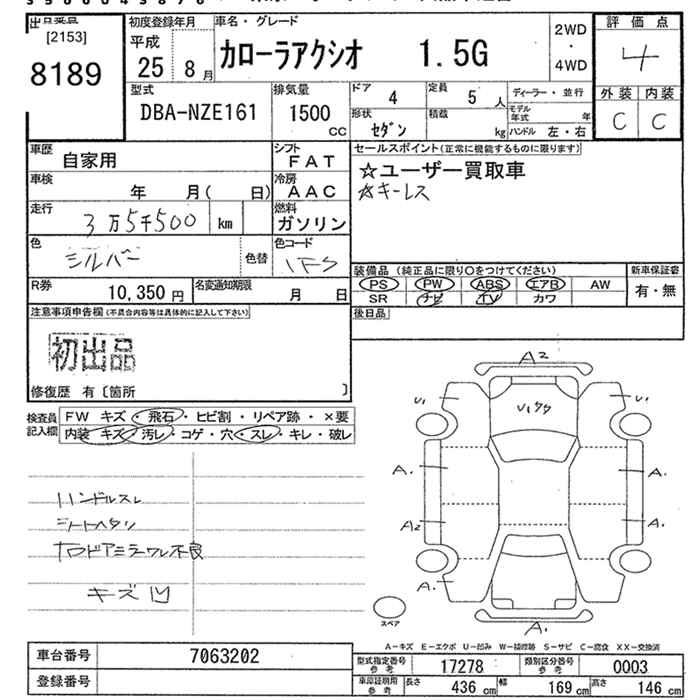 [2153]
8189
初度登録年月
平成
25 8月
車名・グレード
カローラアクシオ 1.5G
2WD
・
4WD
評価点
4
外装 内装
C C
型式
DBA-NZE161
排気量
1500
CC
ドア
4
定員
5人
ディーラー・並行
形状
セダン
積載
kg
モデル年式 年
ハンドル 左・右
車歴
自家用
シフト
FAT
車検
年 月( 日)
冷房
AAC
走行
3万5千500 km
燃料
ガソリン
色
シルバー
色替
色コード
1F5
R券
10,350円
名変通知期限
月 日
セールスポイント(正常に機能するものに限ります)
☆ユーザー買取車
☆キーレス
装備品(純正品に限り○をつけてください)
PS PW ABS エアB AW
SR ナビ TV カワ
新車保証書
有・無
後日品
注意事項申告欄(不具合内容等は具体的に記入して下さい)
初出品
修復歴 有〔箇所 〕
検査員記入欄
FW キズ・飛石・ヒビ割・リペア跡・×要
内装 キズ・汚レ・コゲ・穴・スレ・キレ・破レ
ハンドルスレ
シートヘタリ
キズ凹
A2
U1
U1
A.
A.
A2
A.
A.
A.
スペア
A-キズ E-エクボ U-凹み W-補修跡 S-サビ C-腐食 XX-交換済
車台番号
7063202
登録番号
型式指定番号
参考
17278
類別区分番号
参考
0003
車庫証明用
参考
長さ
436 cm
幅
169 cm
高さ
146 cm